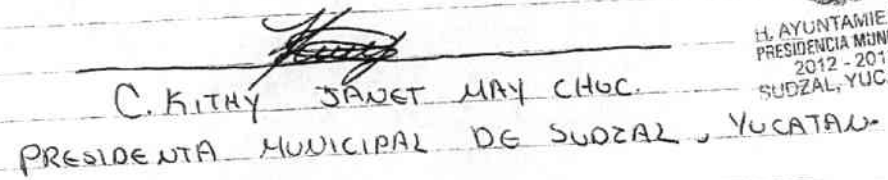 H. AYUNTAMIE
PRESIDENCIA MUNI
2012 - 201
SUDZAL, YUC.
C. KITHY JANET MAY CHUC.
PRESIDENTA MUNICIPAL DE SUDZAL, YUCATAN.